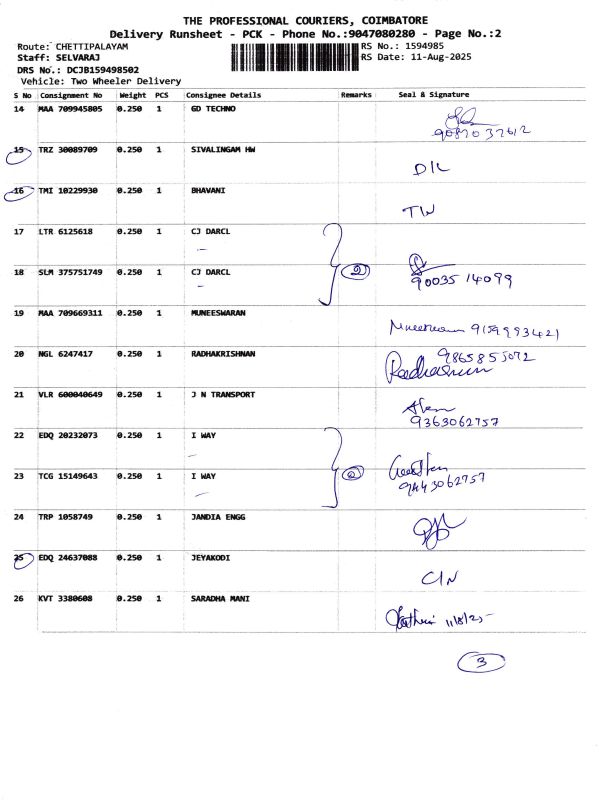 THE PROFESSIONAL COURIERS, COIMBATORE
Delivery Runsheet - PCK - Phone No.:9047080280 - Page No.:2
Route: CHETTIPALAYAM RS No.: 1594985
Staff: SELVARAJ RS Date: 11-Aug-2025
DRS No.: DCJB159498502
Vehicle: Two Wheeler Delivery
S No Consignment No Weight PCS Consignee Details Remarks Seal & Signature
14 MAA 709945805 0.250 1 GD TECHNO
9087037612
15 TRZ 30089709 0.250 1 SIVALINGAM HW
D/L
16 TMI 10229930 0.250 1 BHAVANI
TIN
17 LTR 6125618 0.250 1 CJ DARCL
18 SLM 375751749 0.250 1 CJ DARCL 2
90035 14099
19 MAA 709669311 0.250 1 MUNEESWARAN
9159993421
20 NGL 6247417 0.250 1 RADHAKRISHNAN
9865855072
21 VLR 600040649 0.250 1 J N TRANSPORT
9363062757
22 EDQ 20232073 0.250 1 I WAY
23 TCG 15149643 0.250 1 I WAY
9443062757
24 TRP 1058749 0.250 1 JANDIA ENGG
25 EDQ 24637088 0.250 1 JEYAKODI
C/N
26 KVT 3380608 0.250 1 SARADHA MANI
11/8/25
3